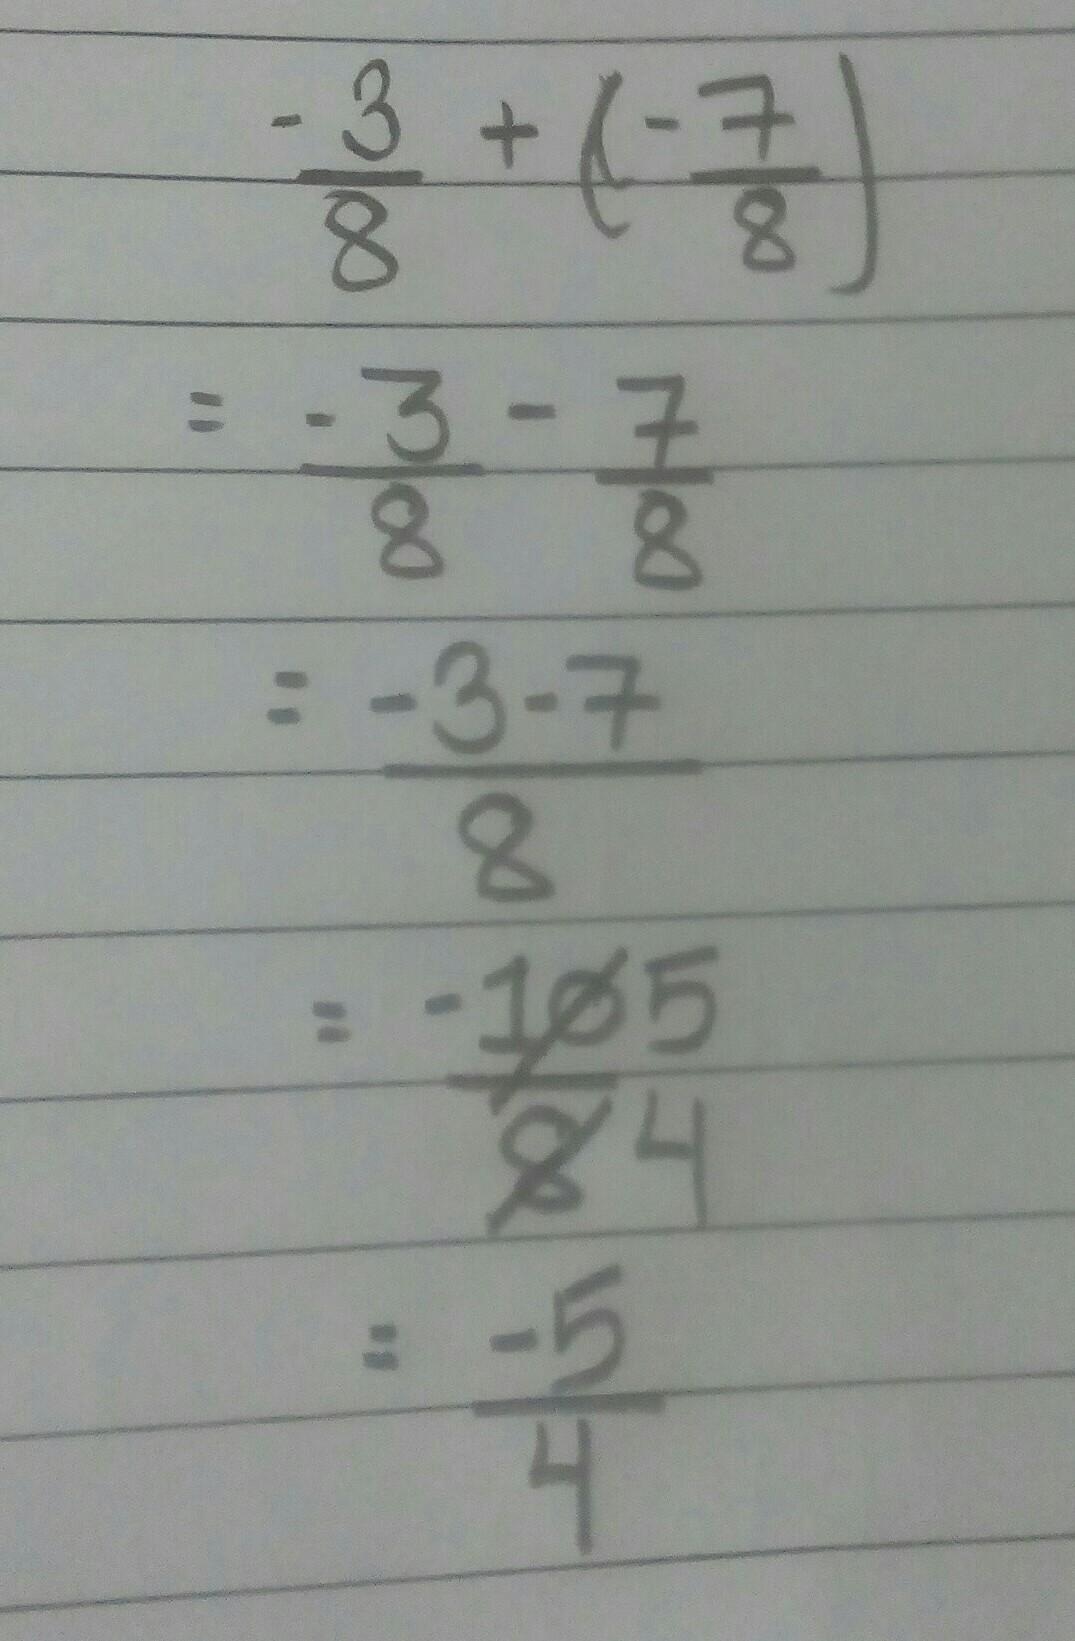 -3/8 + (-7/8)
= -3/8 - 7/8
= -3-7/8
= -10/8 5/4
= -5/4